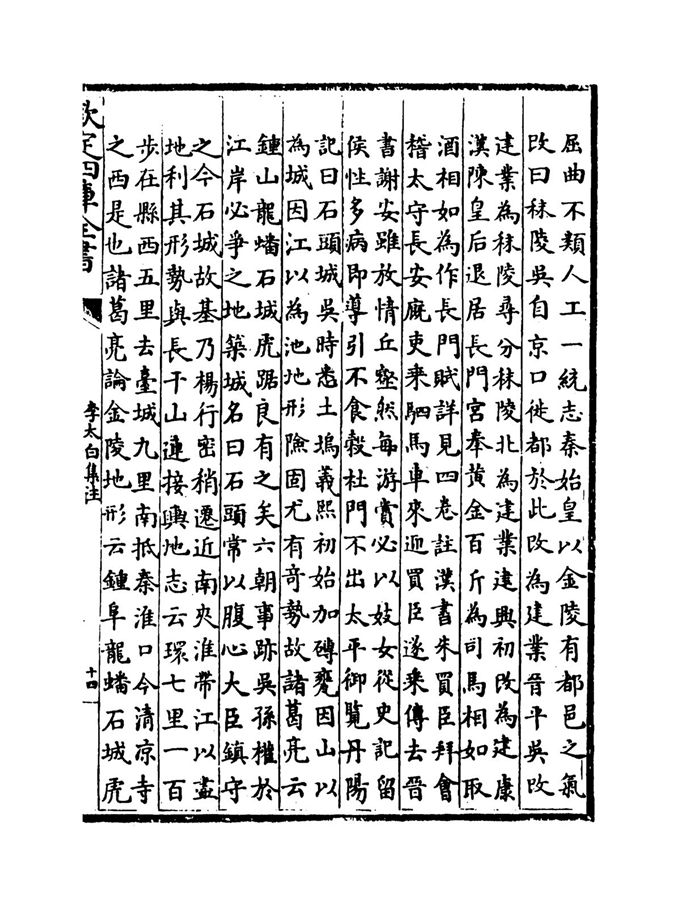 屈曲不類人工一統志秦始皇以金陵有都邑之氣
改曰秣陵吳自京口徙都於此改為建業晉平吳改
建業為秣陵尋分秣陵北為建業建興初改為建康
漢陳皇后退居長門宮奉黄金百斤為司馬相如取
酒相如為作長門賦詳見四卷註漢書朱買臣拜會
稽太守長安廐吏乘駟馬車來迎買臣遂乘傳去晉
書謝安雖放情丘壑然每游賞必以妓女從史記留
侯性多病即導引不食穀杜門不出太平御覽丹陽
記曰石頭城吳時悉土塢義熙初始加磚甃因山以
為城因江以為池地形險固尤有奇勢故諸葛亮云
鍾山龍蟠石城虎踞良有之矣六朝事跡吳孫權於
江岸必爭之地築城名曰石頭常以腹心大臣鎮守
之今石城故基乃楊行密稍遷近南夾淮帶江以盡
地利其形勢與長干山連接輿地志云環七里一百
步在縣西五里去臺城九里南抵秦淮口今清凉寺
之西是也諸葛亮論金陵地形云鍾阜龍蟠石城虎
欽定四庫全書
李太白集注
十四